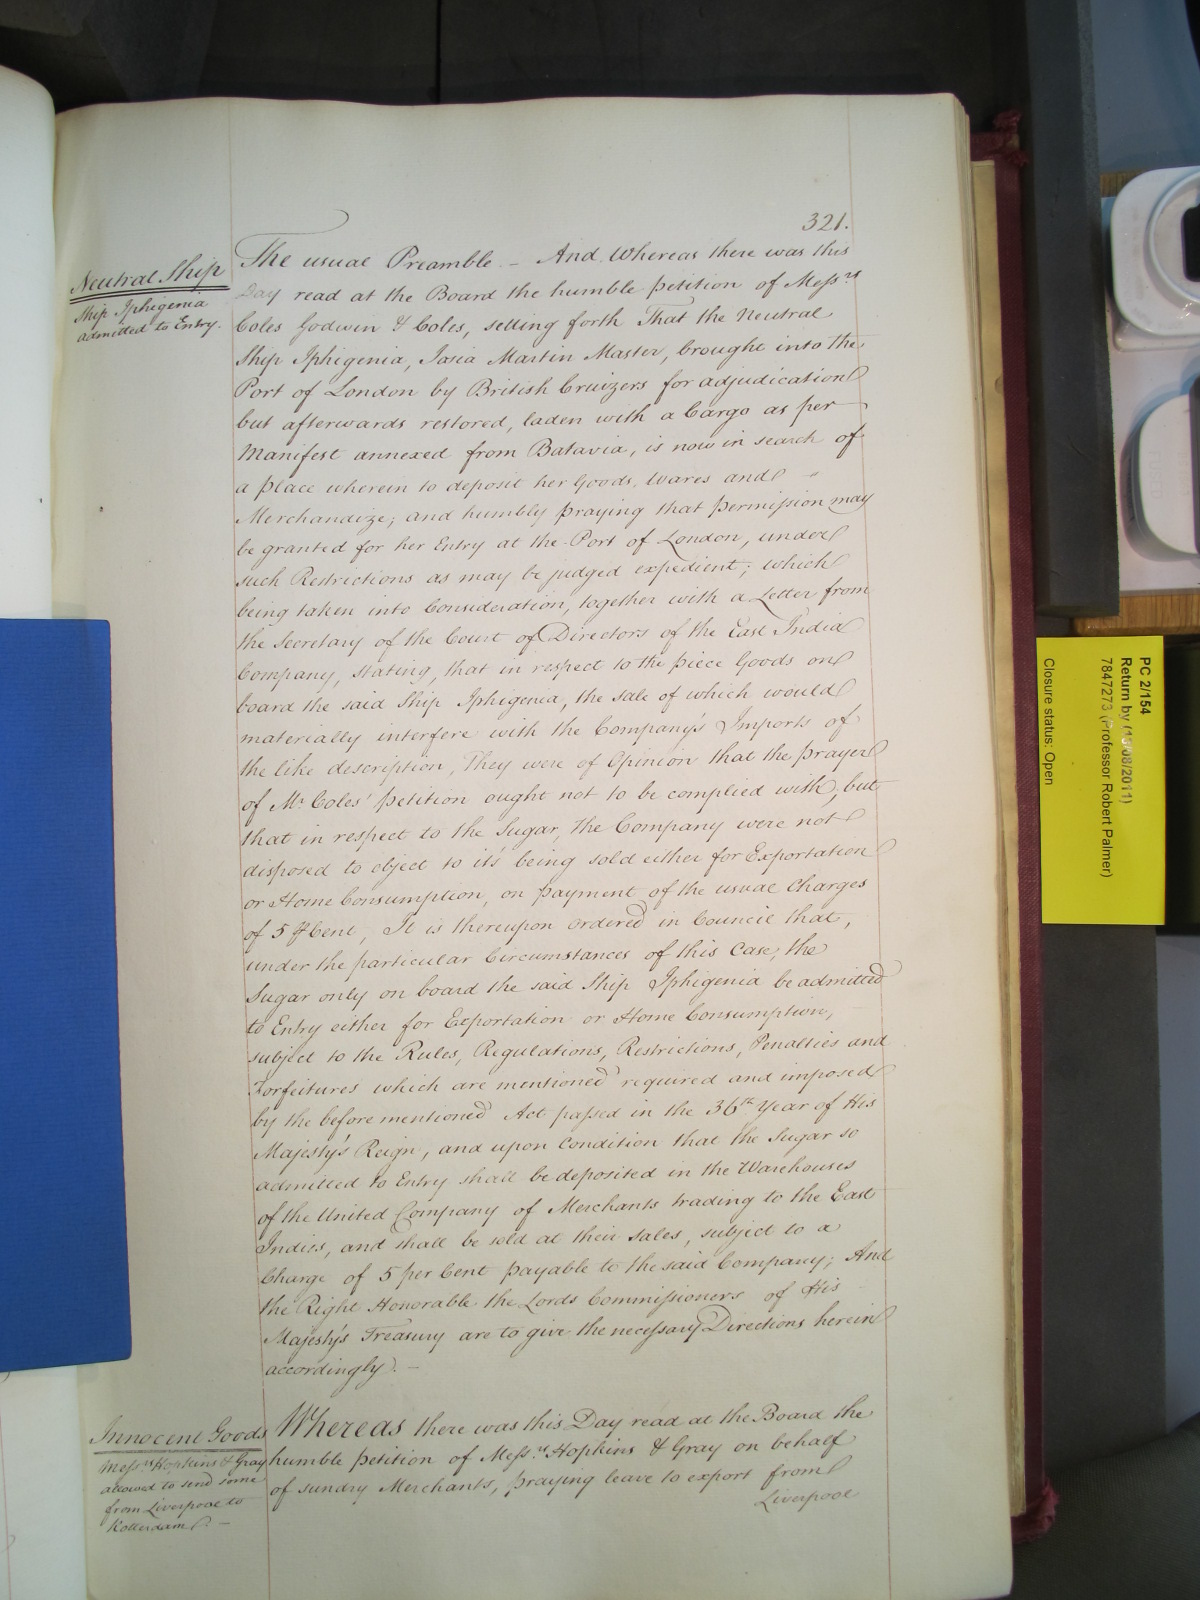 321.
Neutral Ship
Ship Iphigenia
admitted to Entry.
The usual Preamble – And Whereas there was this
Day read at the Board the humble petition of Messrs
Coles Godwin & Coles, setting forth That the Neutral
Ship Iphigenia, Martin Master, brought into the
Port of London by British Cruizers for adjudication
but afterwards restored, laden with a Cargo as per
Manifest annexed from Batavia, is now in search of
a place wherein to deposit her Goods, Wares and
Merchandize; and humbly praying that permission may
be granted for her Entry at the Port of London, under
such Restrictions as may be judged expedient; which
being taken into Consideration, together with a Letter from
the Secretary of the Court of Directors of the East India
Company, stating, that in respect to the piece Goods on
board the said Ship Iphigenia, the sale of which would
materially interfere with the Company's Imports of
the like description, They were of Opinion that the prayer
of Mr. Coles' petition ought not to be complied with, but
that in respect to the Sugar, the Company were not
disposed to object to it's being sold either for Exportation
or Home Consumption, on payment of the usual Charges
of 5 ⅌ Cent, It is thereupon ordered in Council that,
under the particular Circumstances of this Case, the
Sugar only on board the said Ship Iphigenia be admitted
to Entry either for Exportation or Home Consumption,
subject to the Rules, Regulations, Restrictions, Penalties and
Forfeitures which are mentioned required and imposed
by the beforementioned Act passed in the 36th Year of His
Majesty's Reign, and upon Condition that the Sugar so
admitted to Entry shall be deposited in the Warehouses
of the United Company of Merchants trading to the East
Indies, and shall be sold at their sales, subject to a
Charge of 5 per Cent payable to the said Company; And
the Right Honorable the Lords Commissioners of His
Majesty's Treasury are to give the necessary Directions herein
accordingly. –
Innocent Goods
Messrs Hopkins & Gray
allowed to send some
from Liverpool to
Rotterdam. –
Whereas there was this Day read at the Board the
humble petition of Messrs Hopkins & Gray on behalf
of sundry Merchants, praying leave to export from
Liverpool
PC 2/154
Return by (13/08/2011)
7847273 (Professor Robert Palmer)
Closure status: Open